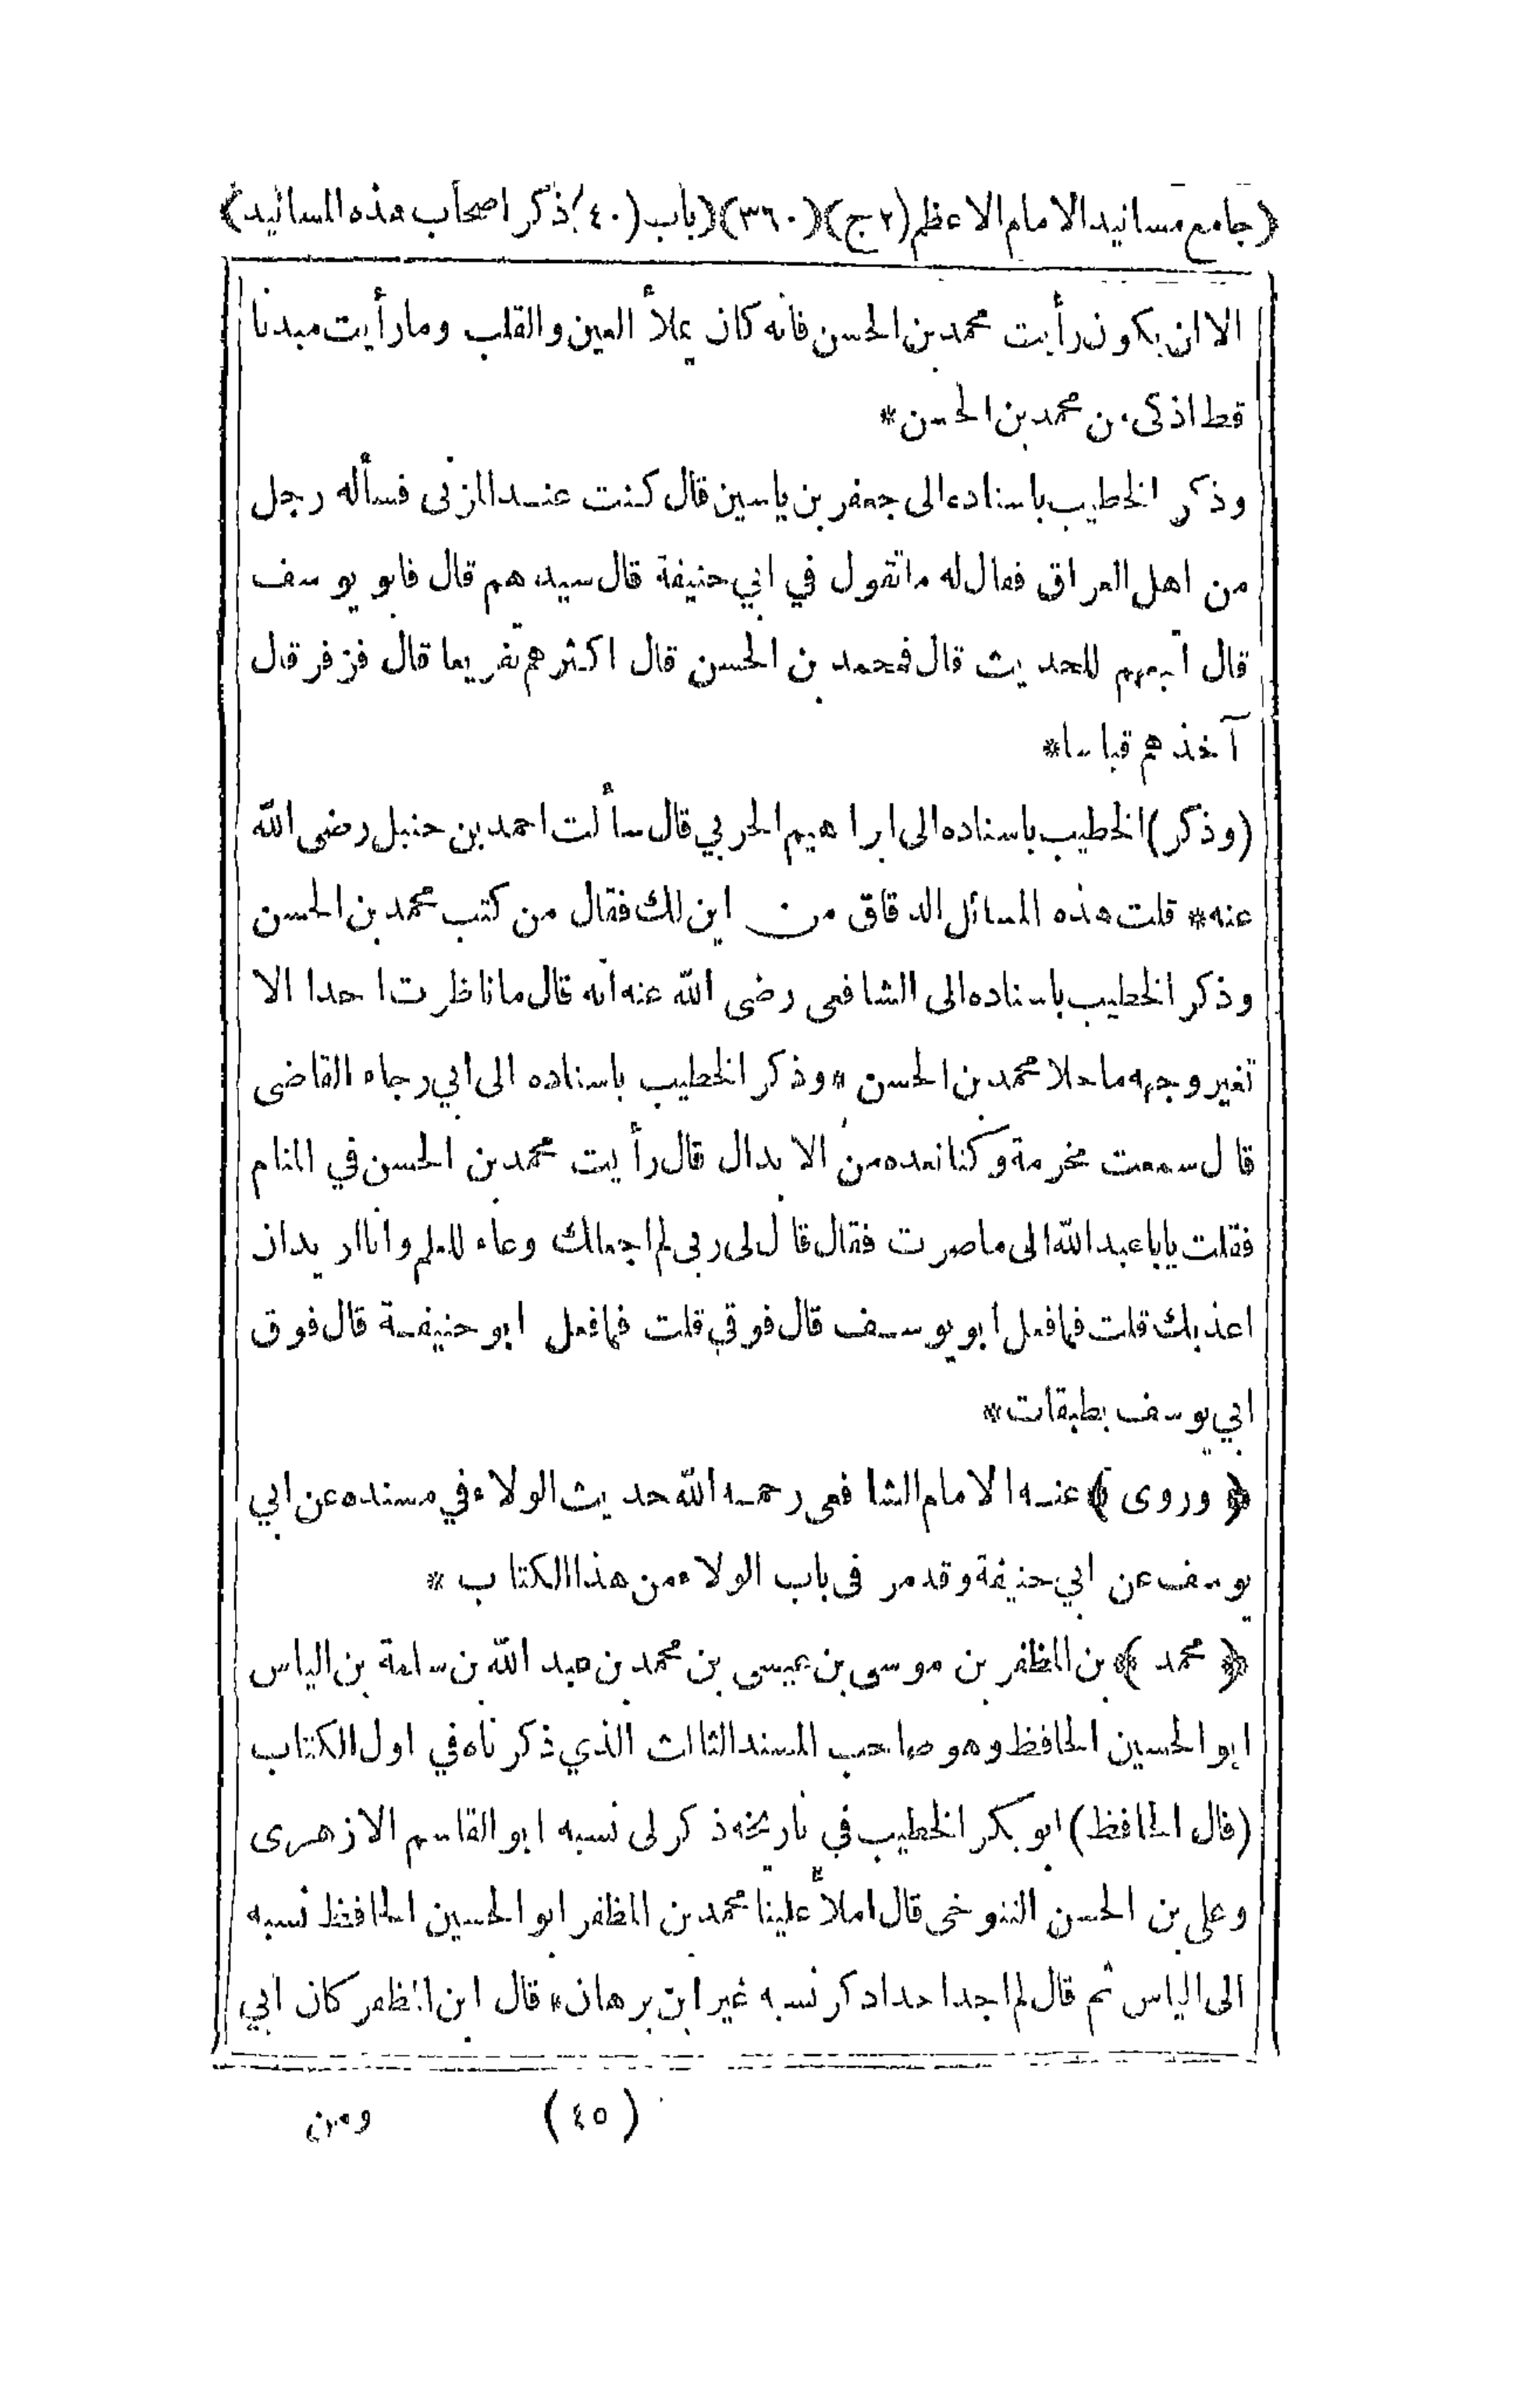 (جامع مسانيد الامام الاعظم (ج٢)(٣٦٠)(باب (٤٠) ذكر اصحاب هذه المسانيد)
الا ان يكون رأيت محمد بن الحسن فانه كان يملأ العين والقلب وما رأيت مبدنا
قط اذكى من محمد بن الحسن *
وذكر الخطيب باسناده الى جعفر بن ياسين قال كنت عند المزنى فسأله رجل
من اهل العراق فقال له ما تقول في ابي حنيفة قال سيدهم قال فابو يوسف
قال اتبعهم للحديث قال فمحمد بن الحسن قال اكثرهم تفريعا قال فزفر قال
آخذهم قياسا *
(وذكر) الخطيب باسناده الى ابراهيم الحربي قال سألت احمد بن حنبل رضى الله
عنه * قلت هذه المسائل الدقاق من اين لك فقال من كتب محمد بن الحسن
وذكر الخطيب باسناده الى الشافعى رضى الله عنه انه قال ما ناظرت احدا الا
تغير وجهه ما خلا محمد بن الحسن * وذكر الخطيب باسناده الى ابي رجاء القاضى
قال سمعت مخرمة وكنا نعده من الابدال قال رأيت محمد بن الحسن في المنام
فقلت يابا عبد الله الى ما صرت فقال قال لى ربى لم اجعلك وعاء للعلم وانا اريد ان
اعذبك قلت فما فعل ابو يوسف قال فوقي قلت فما فعل ابو حنيفة قال فوق
ابي يوسف بطبقات *
﴿ وروى ﴾ عنه الامام الشافعى رحمه الله حديث الولاء في مسنده عن ابي
يوسف عن ابي حنيفة وقد مر فى باب الولاء من هذا الكتاب *
﴿ محمد ﴾ بن المظفر بن موسى بن عيسى بن محمد بن عبد الله بن سلمة بن الياس
ابو الحسين الحافظ وهو صاحب المسند الثالث الذي ذكرناه في اول الكتاب
(قال الحافظ) ابو بكر الخطيب في تاريخه ذكر لى نسبه ابو القاسم الازهرى
وعلى بن الحسن التنوخى قال املأ علينا محمد بن المظفر ابو الحسين الحافظ نسبه
الى الياس ثم قال لم اجد احدا ذكر نسبه غير ابن برهان * قال ابن المظفر كان ابي
(٤٥) ومن